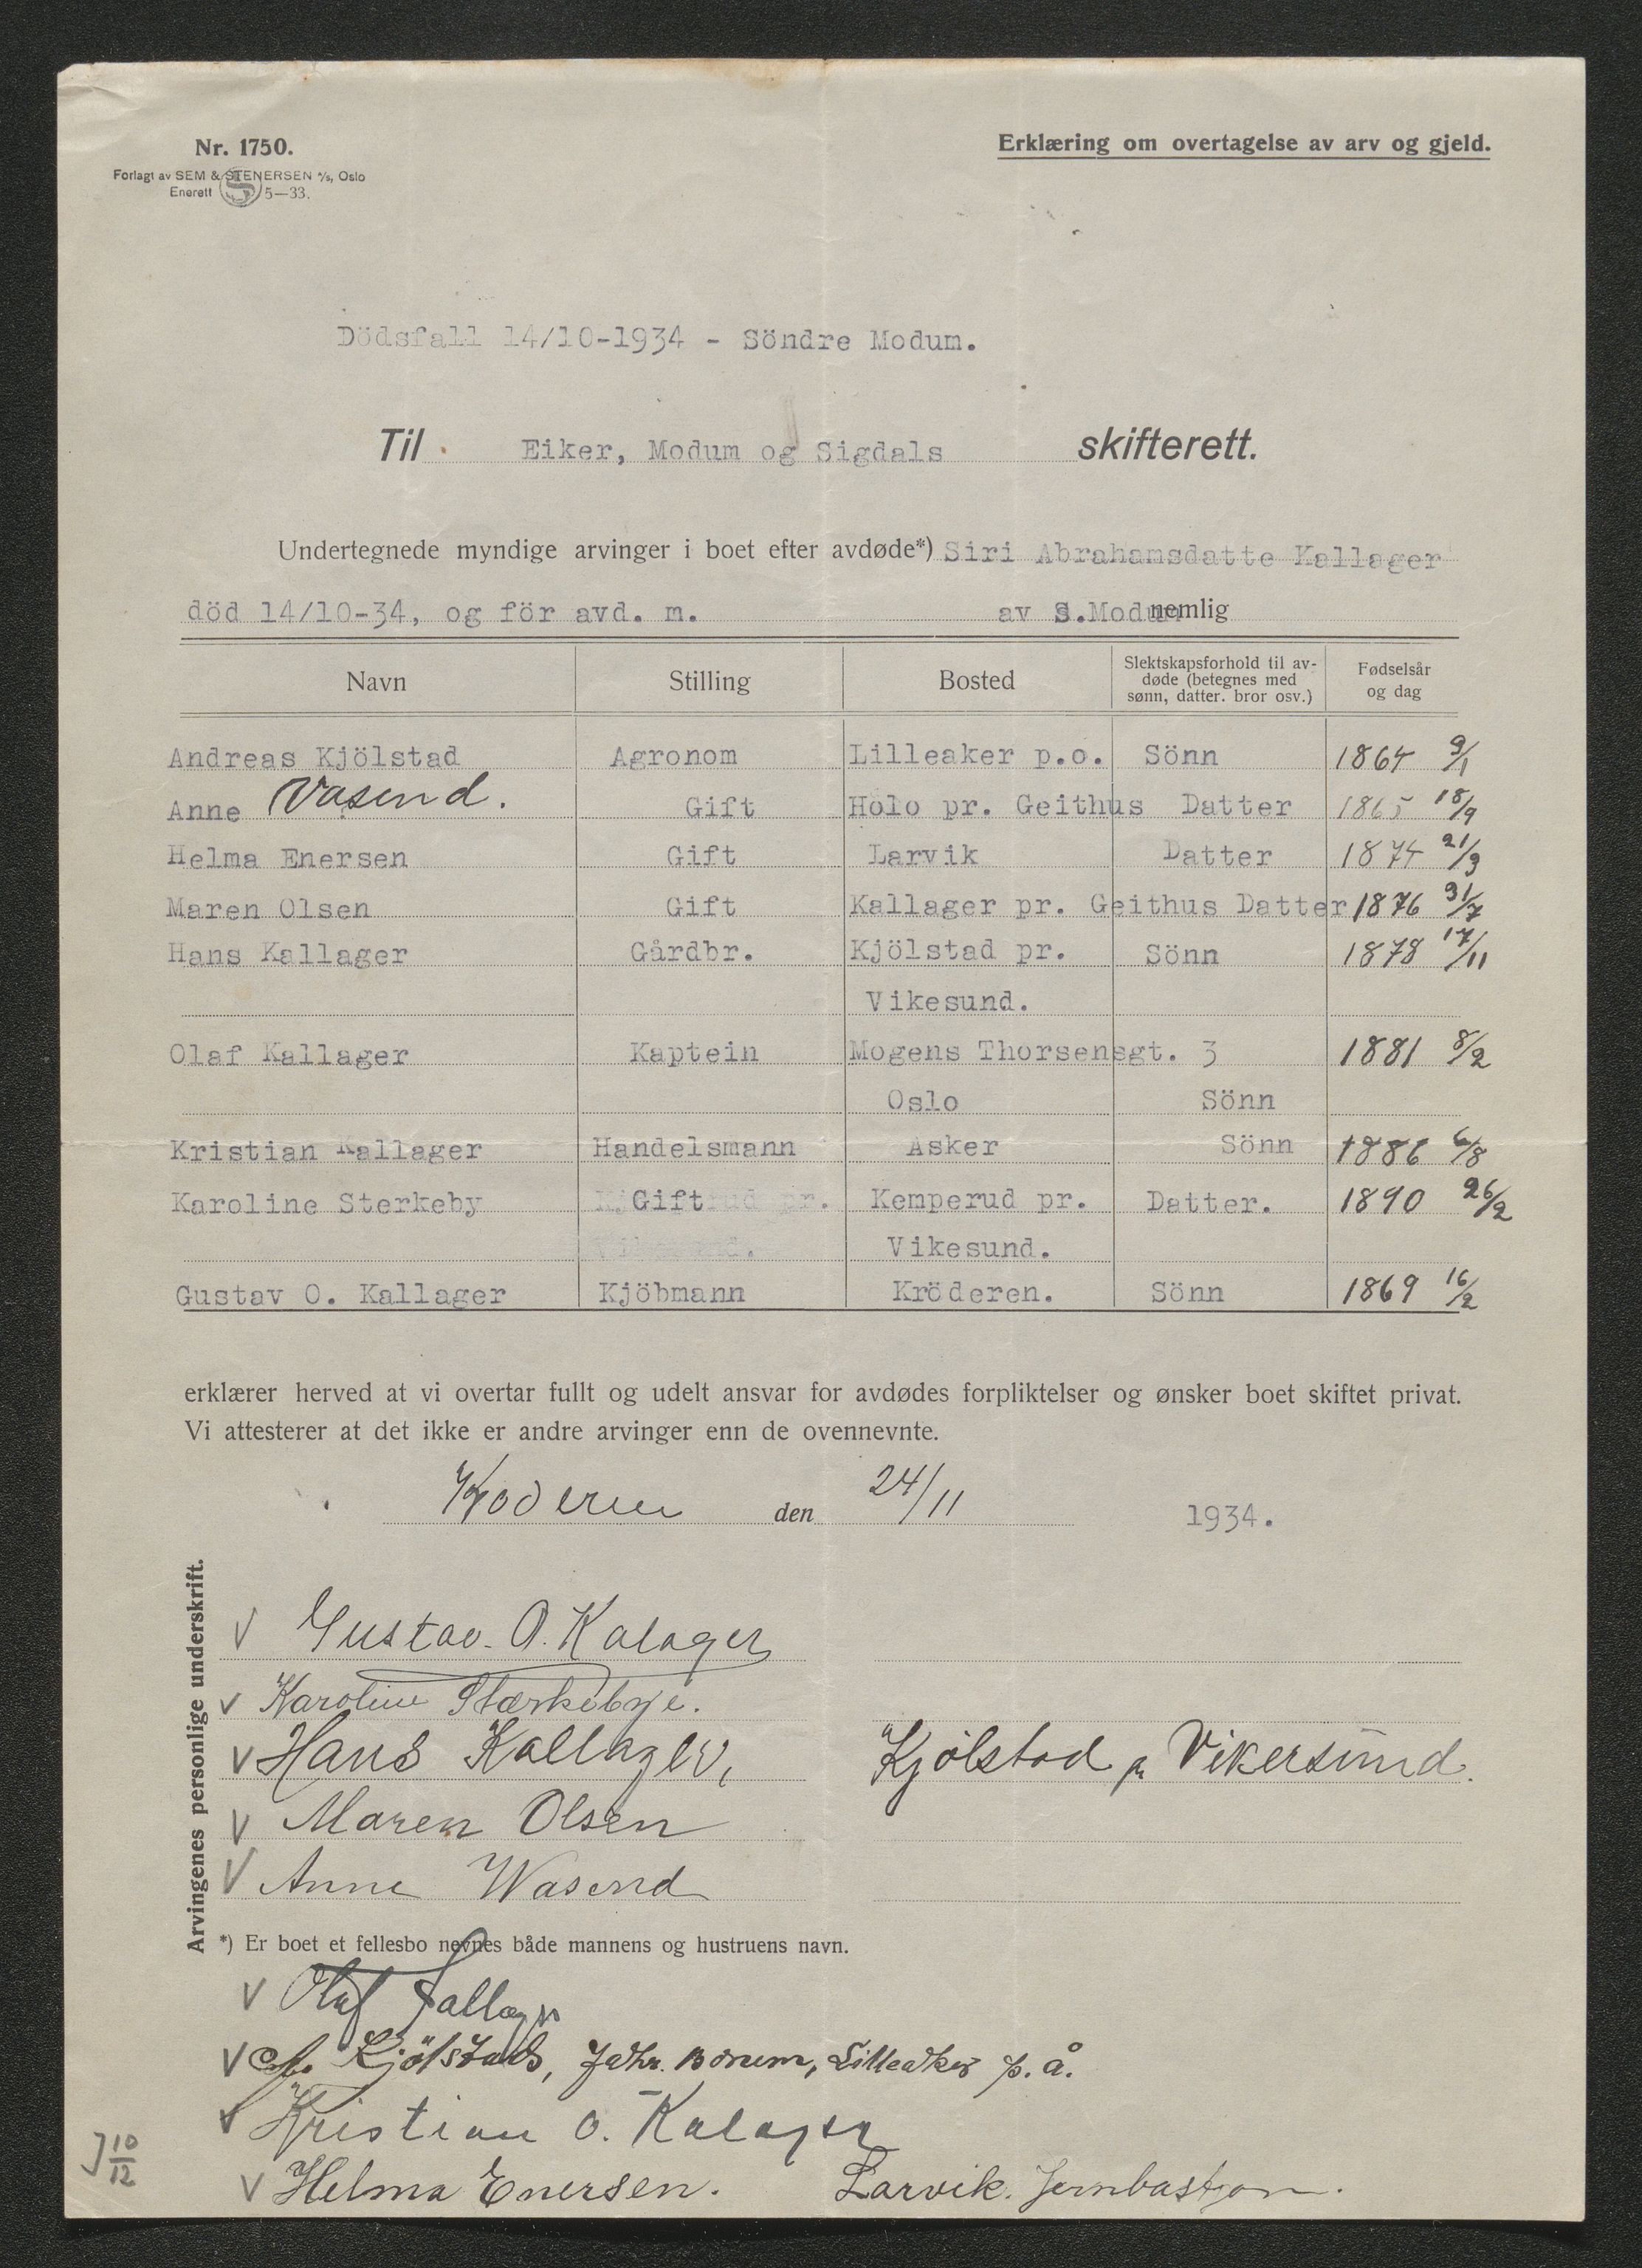 Nr. 1750.
Erklæring om overtagelse av arv og gjeld.
Forlagt av SEM & STENERSEN A/s, Oslo
Enerett S 5—33.
Dödsfall 14/10-1934 - Söndre Modum.
Til Eiker, Modum og Sigdals skifterett.
Undertegnede myndige arvinger i boet efter avdøde*) Siri Abrahamsdatte Kallager
död 14/10-34, og för avd. m. av S.Modum nemlig
Navn Stilling Bosted Slektskapsforhold til avdøde (betegnes med sønn, datter. bror osv.) Fødselsår og dag
Andreas Kjölstad Agronom Lilleaker p.o. Sönn 1864 9/1
Anne Vasend. Gift Holo pr. Geithus Datter 1865 18/9
Helma Enersen Gift Larvik Datter 1874 21/3
Maren Olsen Gift Kallager pr. Geithus Datter 1876 31/7
Hans Kallager Gårdbr. Kjölstad pr. Sönn 1878 17/11
Vikesund.
Olaf Kallager Kaptein Mogens Thorsensgt. 3 1881 8/2
Oslo Sönn
Kristian Kallager Handelsmann Asker Sönn 1886 6/8
Karoline Sterkeby Gift Kemperud pr. Datter. 1890 26/2
Vikesund.
Gustav O. Kallager Kjöbmann Kröderen. Sönn 1869 16/2
erklærer herved at vi overtar fullt og udelt ansvar for avdødes forpliktelser og ønsker boet skiftet privat.
Vi attesterer at det ikke er andre arvinger enn de ovennevnte.
den 24/11 1934.
Arvingenes personlige underskrift.
V Gustav. O. Kalager
V Karoline Stærkebye.
V Hans Kallager, Kjölstad pr Vikersund.
V Maren Olsen
V Anne Wasend
*) Er boet et fellesbo nevnes både mannens og hustruens navn.
V Olaf Kallager
V A. Kjölstad, Lilleaker p. å.
V Kristian O. Kalager
J 10/12
V Helma Enersen. Larvik. Jernbastjon.